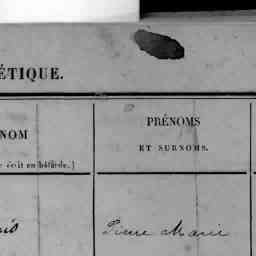 ÉTIQUE.
NOM
PRÉNOMS
ET SURNOMS.
écrit en bâtarde.)
Pierre Marie